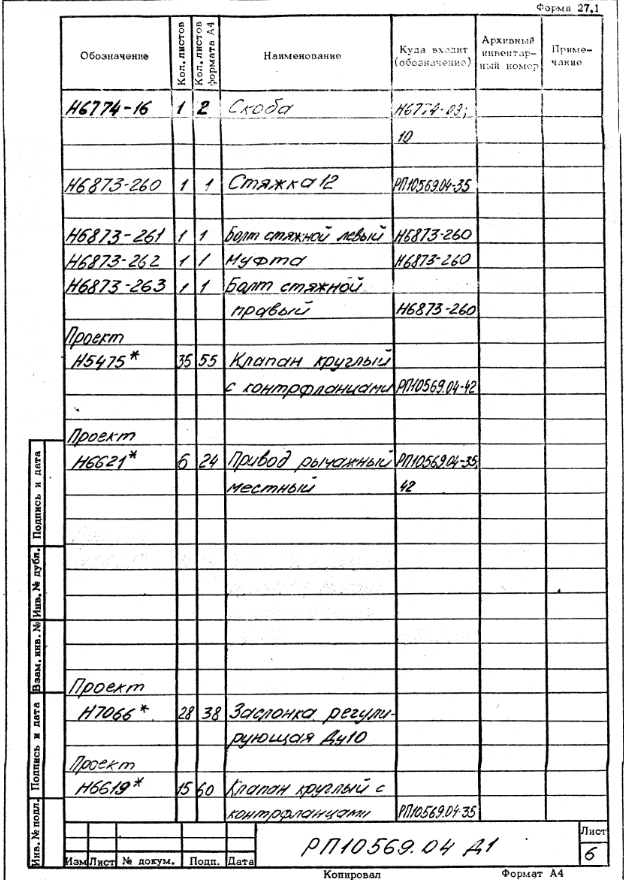 Форма 27,1
Обозначение Кол. листов Кол. листов формата А4 Наименование Куда входит (обозначение) Архивный инвентарный номер Примечание
Н6774-16 1 2 Скоба Н6774-09;
10
Н6873-260 1 1 Стяжка 12 РП10569.04-35
Н6873-261 1 1 Болт стяжной левый Н6873-260
Н6873-262 1 1 Муфта Н6873-260
Н6873-263 1 1 Болт стяжной
правый Н6873-260
Проект
Н5475* 35 55 Клапан круглый
с контрфланцами РП10569.04-42
Проект
Н6621* 6 24 Привод рычажный РП10569.04-35,
местный 42
Проект
Н7066* 28 38 Заслонка регули-
рующая Ду10
Проект
Н6619* 15 60 Клапан круглый с
контрфланцами РП10569.04-35
Инв. № подл. Подпись и дата Взам. инв. № Инв. № дубл. Подпись и дата
РП10569.04 Д1
Лист
6
Изм Лист № докум. Подп. Дата
Копировал Формат А4